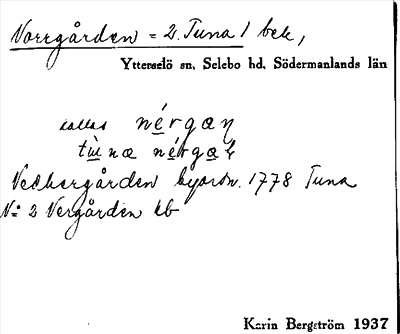 Norrgården = 2. Tuna 1 bek,
Ytterselö sn, Selebo hd, Södermanlands län
kallas nérgaŋ
Nedergården byaordn. 1778 Tuna
No 2 Nergården kb
Karin Bergström 1937